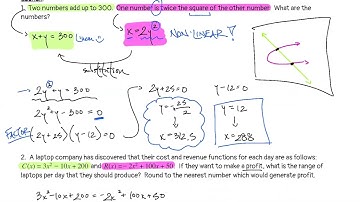 1. Two numbers add up to 300. One number is twice the square of the other number. What are the numbers?
x+y=300 Linear
x=2y² NON-LINEAR!
substitution
2y²+y=300
2y²+y-300=0
FACTOR (2y+25)(y-12)=0
2y+25=0
y=-25/2
x=312.5
y-12=0
y=12
x=288
2. A laptop company has discovered that their cost and revenue functions for each day are as follows:
C(x)=3x²-10x+200 and R(x)=-2x²+100x+50 If they want to make a profit, what is the range of
laptops per day that they should produce? Round to the nearest number which would generate profit.
3x²-10x+200=-2x²+100x+50